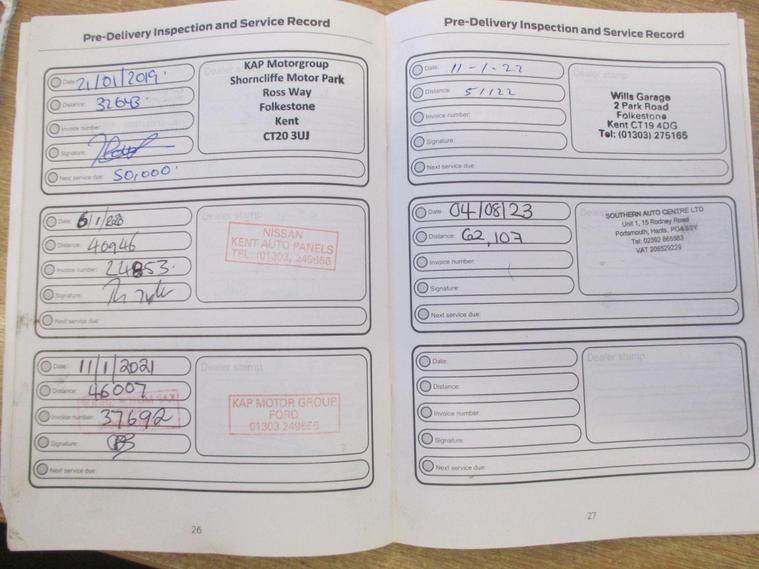 Pre-Delivery Inspection and Service Record
Date: 21/01/2019.
Distance: 32643.
Invoice number:
Signature:
Next service due: 50,000.
KAP Motorgroup
Shorncliffe Motor Park
Ross Way
Folkestone
Kent
CT20 3UJ
Date:
Distance: 40946
Invoice number: 24853.
Signature:
Next service due:
Dealer stamp
NISSAN
KENT AUTO PANELS
TEL: (01303) 249656
Date: 11/1/2021
Distance: 46007
Invoice number: 37692
Signature:
Next service due:
Dealer stamp
KAP MOTOR GROUP
FORD
01303 249656
26
Pre-Delivery Inspection and Service Record
Date: 11-1-22
Distance: 51122
Invoice number:
Signature:
Next service due:
Dealer stamp
Wills Garage
2 Park Road
Folkestone
Kent CT19 4DG
Tel: (01303) 275165
Date: 04/08/23
Distance: 62,107
Invoice number:
Signature:
Next service due:
SOUTHERN AUTO CENTRE LTD
Unit 1, 15 Rodney Road
Portsmouth, Hants,
Tel: 02392 865583
VAT 206529229
Date:
Distance:
Invoice number:
Signature:
Next service due:
Dealer stamp
27